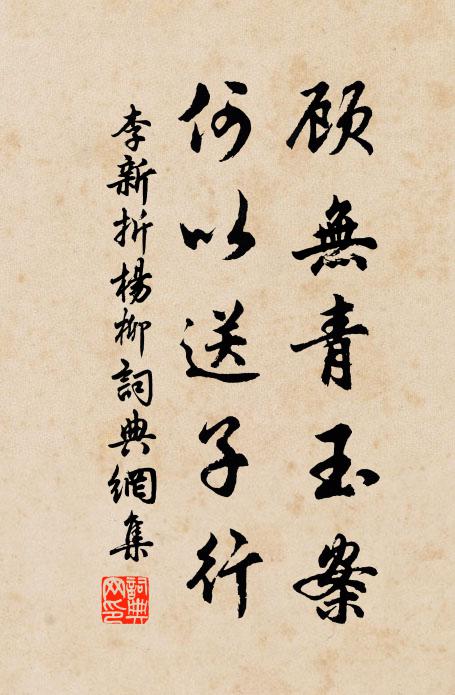 顾無青玉案
何以送子行
李新折楊柳詞典網集
詞典